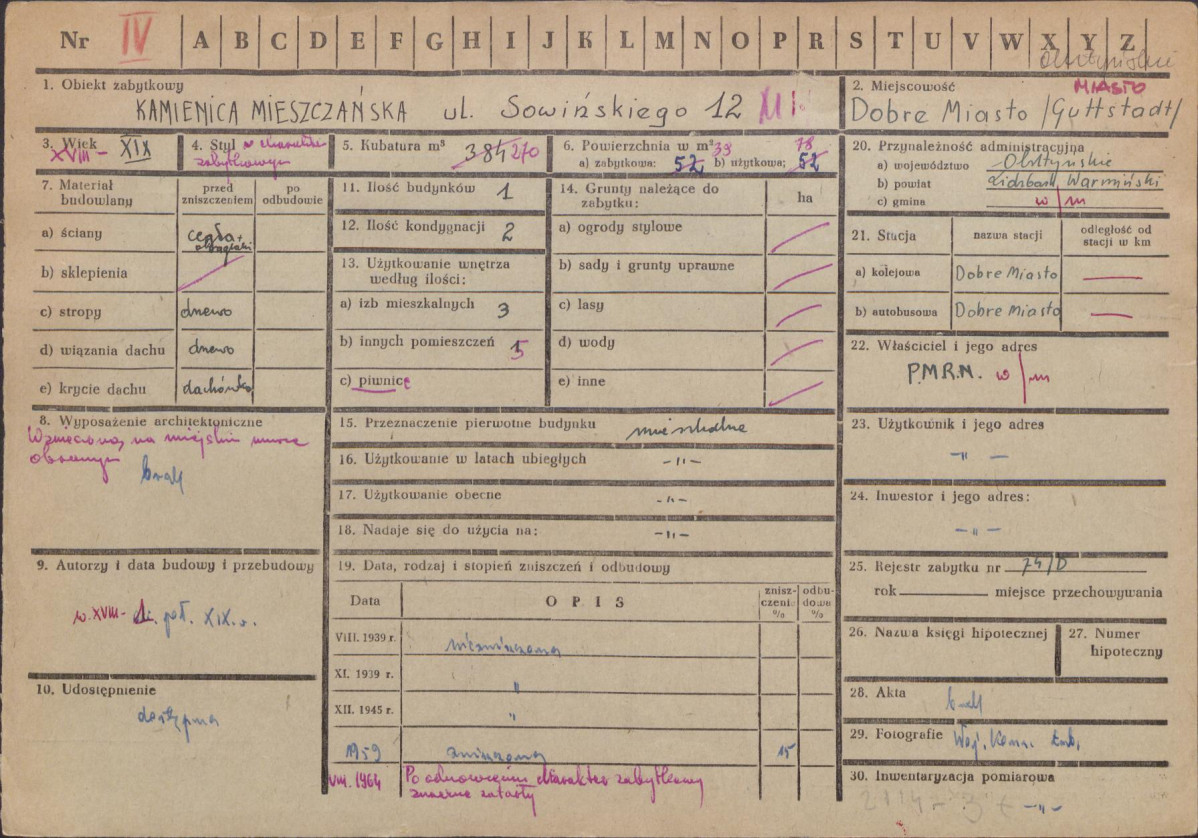 Nr IV A B C D E F G H I J K L M N O P R S T U V W X Y Z
Olsztyńskie
1. Obiekt zabytkowy
KAMIENICA MIESZCZAŃSKA ul. Sowińskiego 12
2. Miejscowość MIASTO
Dobre Miasto /Guttstadt/
3. Wiek
XVIII - XIX
4. Styl o charakterze
zabytkowym
5. Kubatura m³
384 270
6. Powierzchnia w m² 39 78
a) zabytkowa: 52 b) użytkowa: 52
7. Materiał budowlany
przed zniszczeniem
po odbudowie
a) ściany cegła +
b) sklepienia
c) stropy drewno
d) wiązania dachu drewno
e) krycie dachu dachówka
8. Wyposażenie architektoniczne
Wzniesiona na miejskim murze
obronnym
brak
9. Autorzy i data budowy i przebudowy
w. XVIII - I. poł. XIX. w.
10. Udostępnienie
dostępna
11. Ilość budynków 1
12. Ilość kondygnacji 2
13. Użytkowanie wnętrza
według ilości:
a) izb mieszkalnych 3
b) innych pomieszczeń 5
c) piwnice
14. Grunty należące do
zabytku:
ha
a) ogrody stylowe
b) sady i grunty uprawne
c) lasy
d) wody
e) inne
15. Przeznaczenie pierwotne budynku mieszkalne
16. Użytkowanie w latach ubiegłych -"-
17. Użytkowanie obecne -"-
18. Nadaje się do użycia na: -"-
19. Data, rodzaj i stopień zniszczeń i odbudowy
Data
OPIS
znisz-
czenia
%
odbu-
dowa
%
VIII. 1939 r. niezniszczona
XI. 1939 r. "
XII. 1945 r. "
1959 zniszczona 15
VIII. 1964 Po odnowieniu charakter zabytkowy
znacznie zatarty
20. Przynależność administracyjna
a) województwo Olsztyńskie
b) powiat Lidzbark Warmiński
c) gmina w/m
21. Stacja
nazwa stacji
odległość od
stacji w km
a) kolejowa Dobre Miasto
b) autobusowa Dobre Miasto
22. Właściciel i jego adres
P.M.R.N. w/m
23. Użytkownik i jego adres
-"-
24. Inwestor i jego adres:
-"-
25. Rejestr zabytku nr 74/D
rok miejsce przechowywania
26. Nazwa księgi hipotecznej
27. Numer
hipoteczny
28. Akta brak
29. Fotografie Woj. Kons. Zab.
30. Inwentaryzacja pomiarowa
-"-